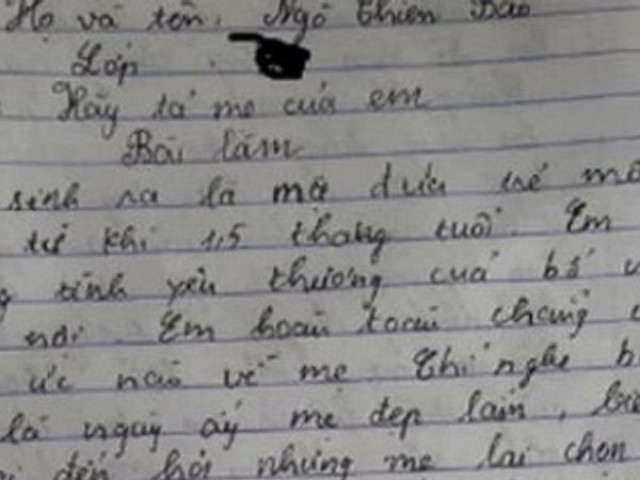 Họ và tên: Ngô Thiên Bảo
Lớp
Hãy tả mẹ của em
Bài làm
sinh ra là một đứa trẻ mồ
từ khi 1,5 tháng tuổi. Em
tình yêu thương của bố
nội. Em hoàn toàn chẳng
ức nào về mẹ. Chỉ nghe
là ngày ấy mẹ đẹp lắm,
đến hỏi nhưng mẹ lại chọn